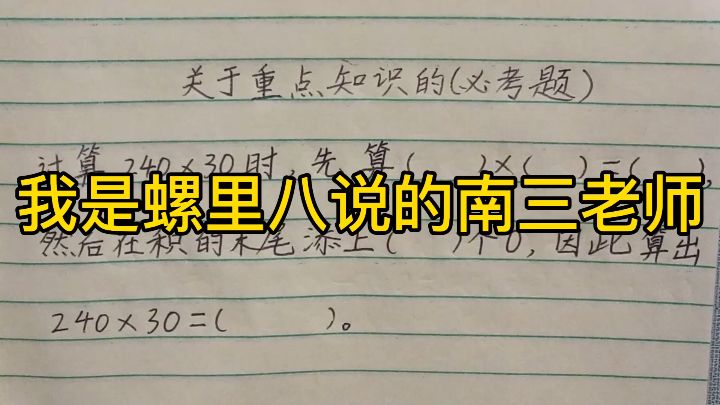 关于重点知识的(必考题)
计算240×30时,先算( )×( )=( ),
我是螺里八说的南三老师
然后在积的末尾添上( )个0,因此算出
240×30=( )。